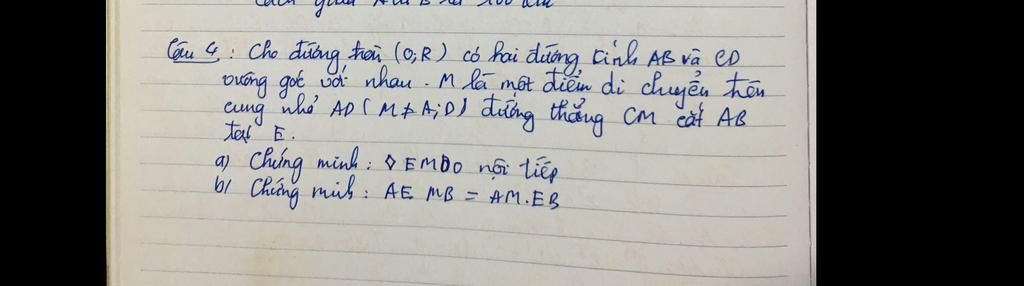 Câu 4 : Cho đường tròn (O;R) có hai đường kính AB và CD
vuông góc với nhau. M là một điểm di chuyển trên
cung nhỏ AD ( M ≠ A;D) đường thẳng CM cắt AB
tại E.
a) Chứng minh : ◊ EMDO nội tiếp
b/ Chứng minh : AE MB = AM.EB